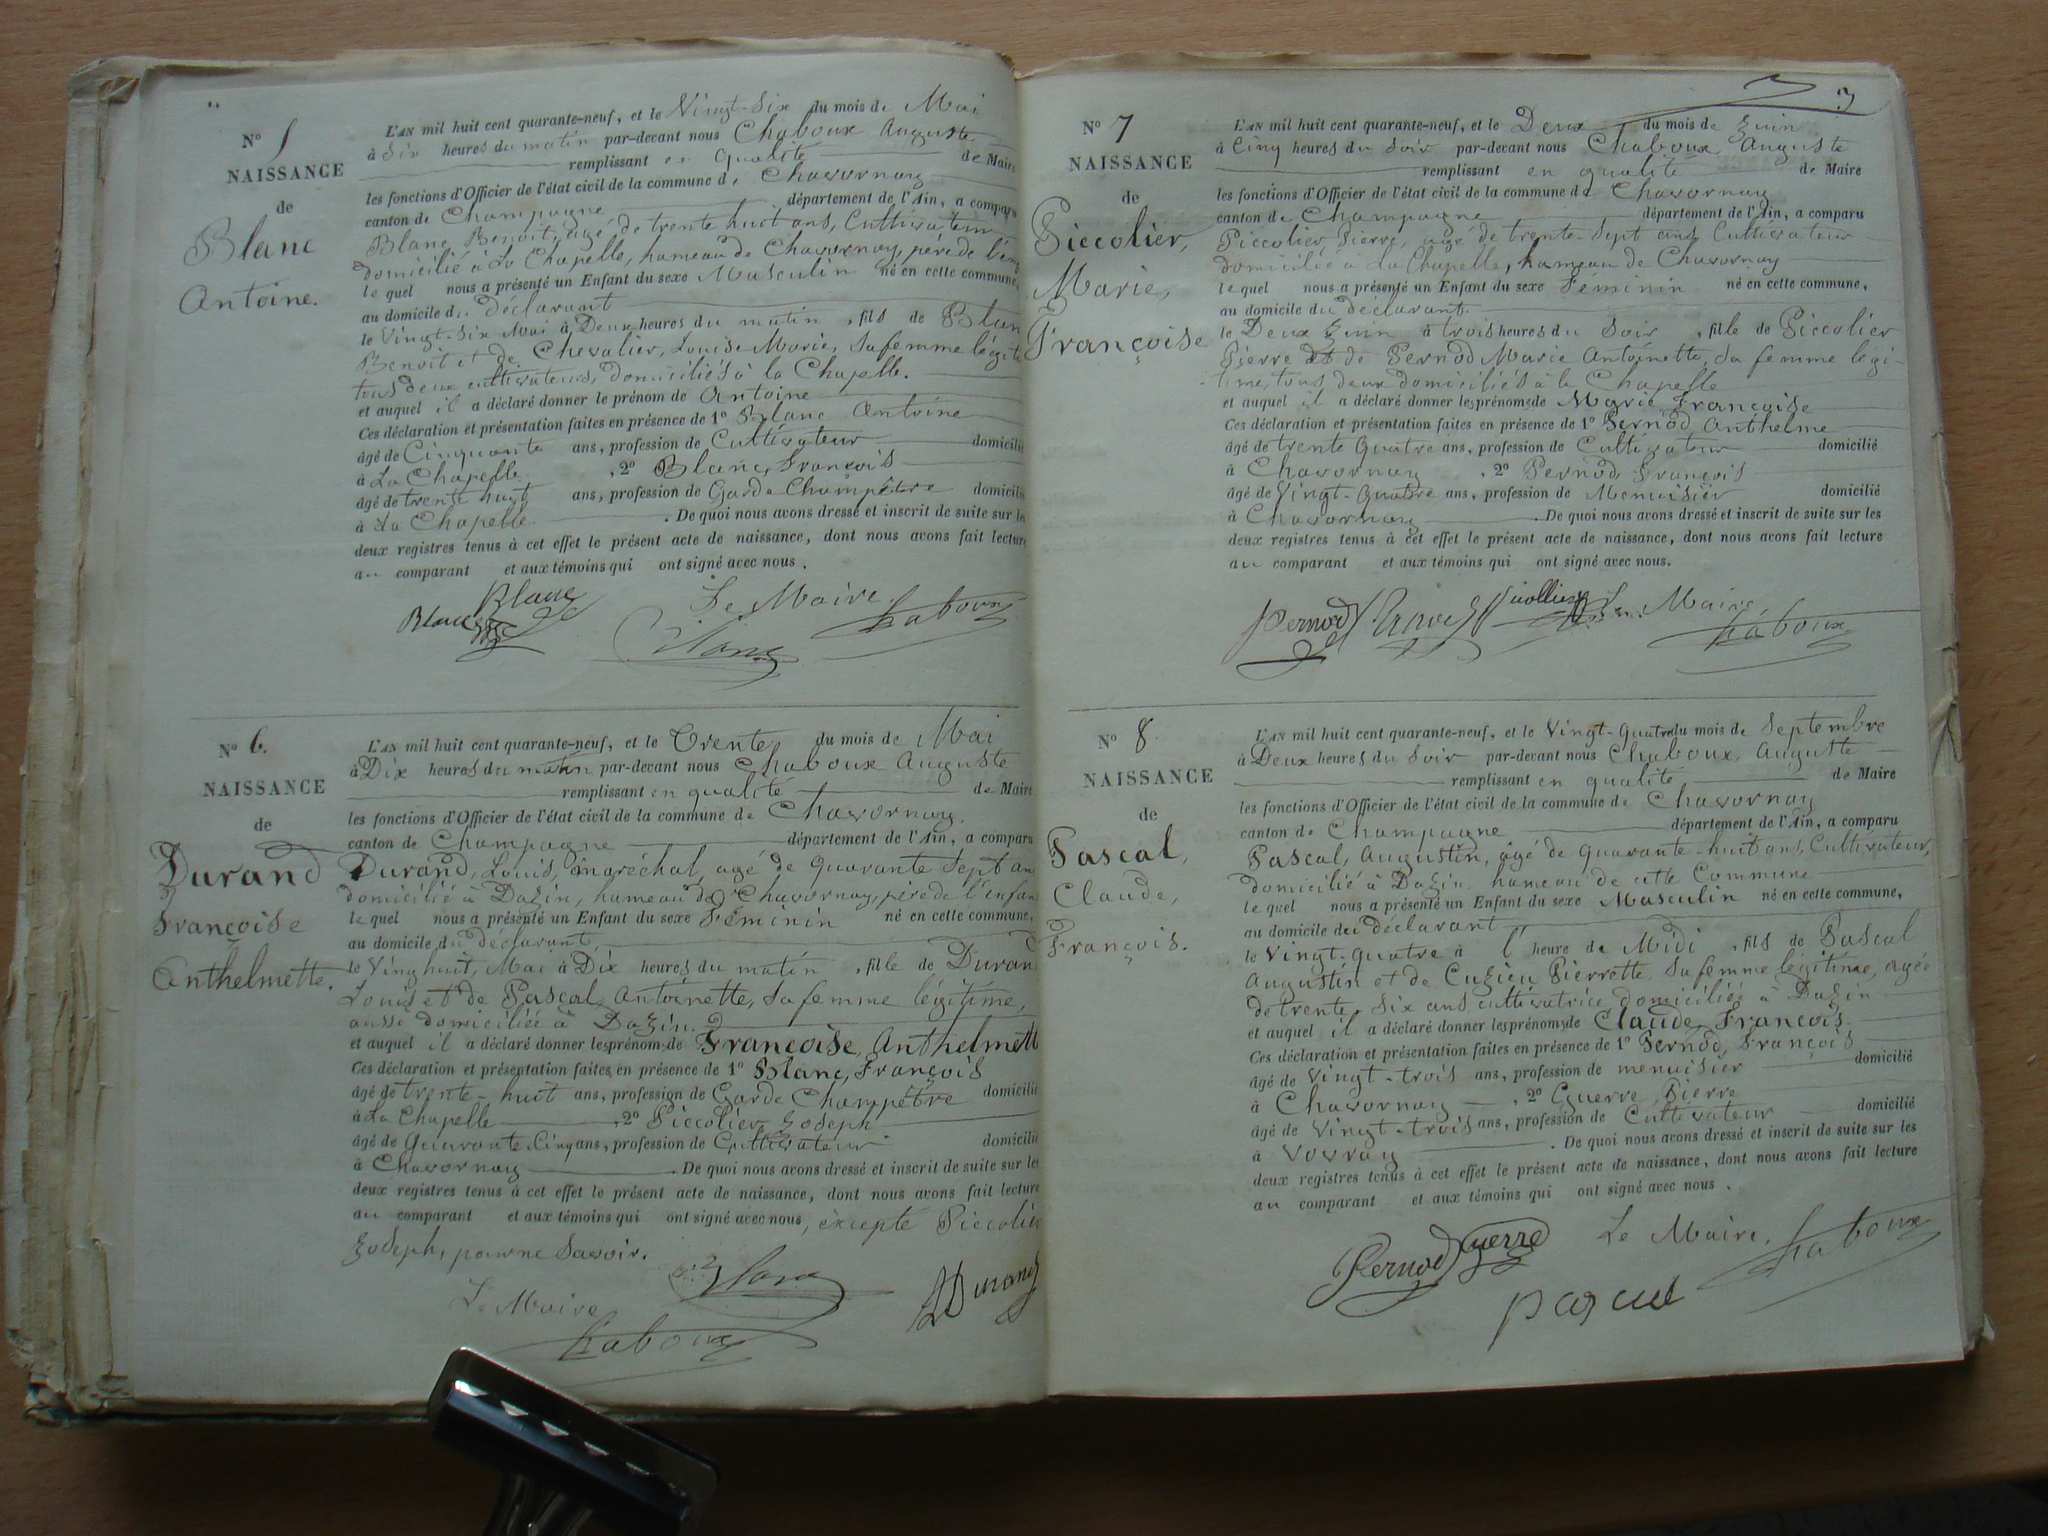 N° 5
NAISSANCE
de
Blanc
Antoine.
L'AN mil huit cent quarante-neuf, et le Vingt-Six du mois de Mai
à Six heures du matin par-devant nous Chaboux Auguste
remplissant en qualité de Maire
les fonctions d'Officier de l'état civil de la commune d. Chavornay
canton de Champagne département de l'Ain, a comparu
Blanc Benoit, agé de trente huit ans, Cultivateur
domicilié à La Chapelle, hameau de Chavornay, père de l'enf
le quel nous a présenté un Enfant du sexe Masculin né en cette commune,
au domicile du déclarant
le Vingt-Six Mai à Deux heures du matin , fils de Blan
Benoit et de Chevalier, Louise Marie, sa femme légit
tous deux cultivateurs, domiciliés à la Chapelle.
et auquel il a déclaré donner le prénom de Antoine
Ces déclaration et présentation faites en présence de 1° Blanc Antoine
âgé de Cinquante ans, profession de Cultivateur domicilié
à La Chapelle , 2° Blanc, François
âgé de trente huit ans, profession de Garde Champêtre domicilié
à La Chapelle . De quoi nous avons dressé et inscrit de suite sur les
deux registres tenus à cet effet le présent acte de naissance, dont nous avons fait lecture
au comparant et aux témoins qui ont signé avec nous .
Blanc
Blanc
Le Maire.
Blanc
Chaboux
N° 6.
NAISSANCE
de
Durand
Françoise
Anthelmette.
L'AN mil huit cent quarante-neuf, et le Trente du mois de Mai
à Dix heures du matin par-devant nous Chaboux Auguste
remplissant en qualité de Maire
les fonctions d'Officier de l'état civil de la commune de Chavornay.
canton de Champagne département de l'Ain, a comparu
Durand, Louis, maréchal, agé de quarante Sept an
domicilié à Dazin, hameau de Chavornay, père de l'enfan
le quel nous a présenté un Enfant du sexe Féminin né en cette commune,
au domicile du déclarant
le Vinghuit, Mai à Dix heures du matin , fille de Duran
Louis et de Pascal, Antoinette, sa femme légitime,
aussi domiciliée à Dazin.
et auquel il a déclaré donner les prénoms de Françoise, Anthelmett
Ces déclaration et présentation faites en présence de 1° Blanc, François
âgé de trente-huit ans, profession de Garde Champêtre domicilié
à La Chapelle , 2° Piccolier Joseph
âgé de Quarante Cinq ans, profession de Cultivateur domicilié
à Chavornay . De quoi nous avons dressé et inscrit de suite sur les
deux registres tenus à cet effet le présent acte de naissance, dont nous avons fait lecture
au comparant et aux témoins qui ont signé avec nous, excepté Piccolier
Joseph, pour ne savoir.
Blanc
Durand
Le Maire
Chaboux
3
N° 7
NAISSANCE
de
Piccolier,
Marie,
Françoise
L'AN mil huit cent quarante-neuf, et le Deux du mois de Juin
à Cinq heures du Soir par-devant nous Chaboux Auguste
remplissant en qualité de Maire
les fonctions d'Officier de l'état civil de la commune de Chavornay
canton de Champagne département de l'Ain, a comparu
Piccolier, Pierre, agé de trente-Sept ans, Cultivateur
domicilié à La Chapelle, hameau de Chavornay
le quel nous a présenté un Enfant du sexe Féminin né en cette commune,
au domicile du déclarant.
le Deux Juin à trois heures du Soir , fille de Piccolier
Pierre et de Pernod Marie Antoinette, sa femme légi-
time, tous deux domiciliés à la Chapelle
et auquel il a déclaré donner les prénoms de Marie Françoise
Ces déclaration et présentation faites en présence de 1° Pernod Anthelme
âgé de trente Quatre ans, profession de Cultivateur domicilié
à Chavornay , 2° Pernod, François
âgé de Vingt-Quatre ans, profession de Menuisier domicilié
à Chavornay . De quoi nous avons dressé et inscrit de suite sur les
deux registres tenus à cet effet le présent acte de naissance, dont nous avons fait lecture
au comparant et aux témoins qui ont signé avec nous.
Pernod
Le Maire
Chaboux
N° 8.
NAISSANCE
de
Pascal,
Claude,
François.
L'AN mil huit cent quarante-neuf, et le Vingt-Quatre du mois de Septembre
à Deux heures du Soir par-devant nous Chaboux, Auguste
remplissant en qualité de Maire
les fonctions d'Officier de l'état civil de la commune de Chavornay
canton de Champagne département de l'Ain, a comparu
Pascal, Augustin, agé de Quarante-huit ans, Cultivateur,
domicilié à Dazin hameau de cette Commune
le quel nous a présenté un Enfant du sexe Masculin né en cette commune,
au domicile du déclarant
le Vingt-quatre à l' heure de Midi , fils de Pascal
Augustin et de Cuzieu Pierrette sa femme légitime, agée
de trente-Six ans cultivatrice domiciliée à Dazin
et auquel il a déclaré donner les prénoms de Claude, François.
Ces déclaration et présentation faites en présence de 1° Pernod, François
âgé de Vingt-trois ans, profession de menuisier domicilié
à Chavornay , 2° Guerre Pierre
âgé de Vingt-trois ans, profession de Cultivateur domicilié
à Vovray . De quoi nous avons dressé et inscrit de suite sur les
deux registres tenus à cet effet le présent acte de naissance, dont nous avons fait lecture
au comparant et aux témoins qui ont signé avec nous .
Pernod
Guerre
Le Maire,
Chaboux
pascal